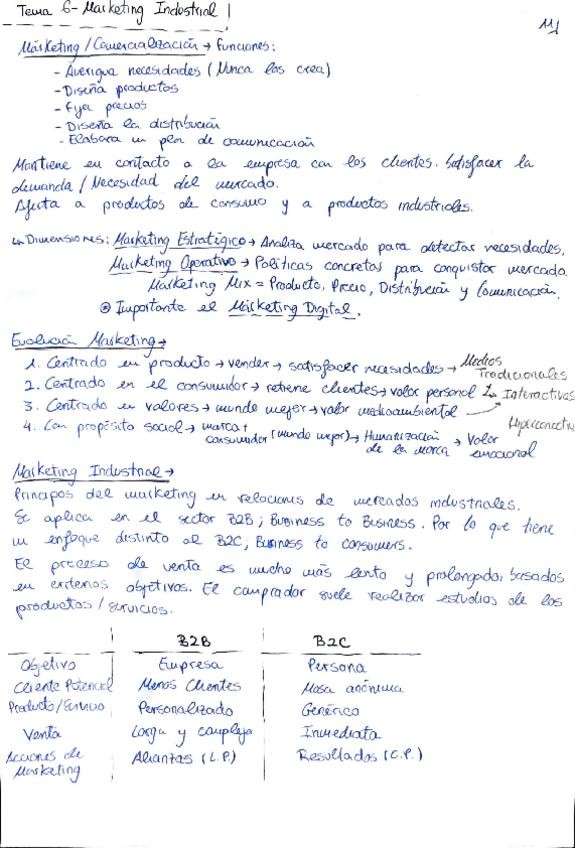 Tema 6- Marketing Industrial
11
Márketing / Comercialización → Funciones:
- Averigua necesidades (Nunca las crea)
- Diseña productos
- Fija precios
- Diseña la distribución
- Elabora un plan de comunicación
Mantiene en contacto a la empresa con los clientes. Satisfacer la
demanda / Necesidad del mercado.
Afecta a productos de consumo y a productos industriales.
↳ Dimensiones: Marketing Estratégico → Analiza mercado para detectar necesidades.
Marketing Operativo → Políticas concretas para conquistar mercado.
Marketing Mix = Producto, Precio, Distribución y Comunicación.
Importante el Márketing Digital.
Evolución Marketing →
1. Centrado en producto → vender → satisfacer necesidades → Medios Tradicionales
2. Centrado en el consumidor → retiene clientes → valor personal → Interactivas
3. Centrado en valores → mundo mejor → valor medioambiental
4. Con propósito social → marca + consumidor (mundo mejor) → Humanización de la marca → Valor emocional
Hiperconectiv
Marketing Industrial →
Principios del marketing en relaciones de mercados industriales.
Se aplica en el sector B2B; Business to Business. Por lo que tiene
un enfoque distinto al B2C, Business to consumers.
El proceso de venta es mucho más lento y prolongado; basados
en criterios objetivos. El comprador suele realizar estudios de los
productos / servicios.
B2B B2C
Objetivo Empresa Persona
Cliente Potencial Menos Clientes Masa anónima
Producto/Servicio Personalizado Genérico
Venta Larga y compleja Inmediata
Acciones de Marketing Alianzas (L.P.) Resultados (C.P.)